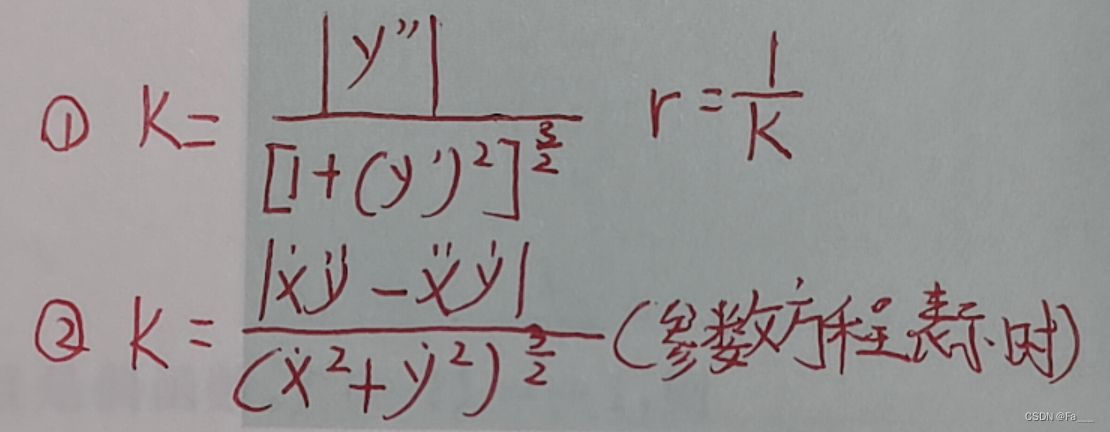 ① K = |y''| / [1+(y')²]^{3/2} r = 1/K
② K = |ẋÿ - ẍẏ| / (ẋ²+ẏ²)^{3/2} (参数方程表示时)
CSDN @Fa___